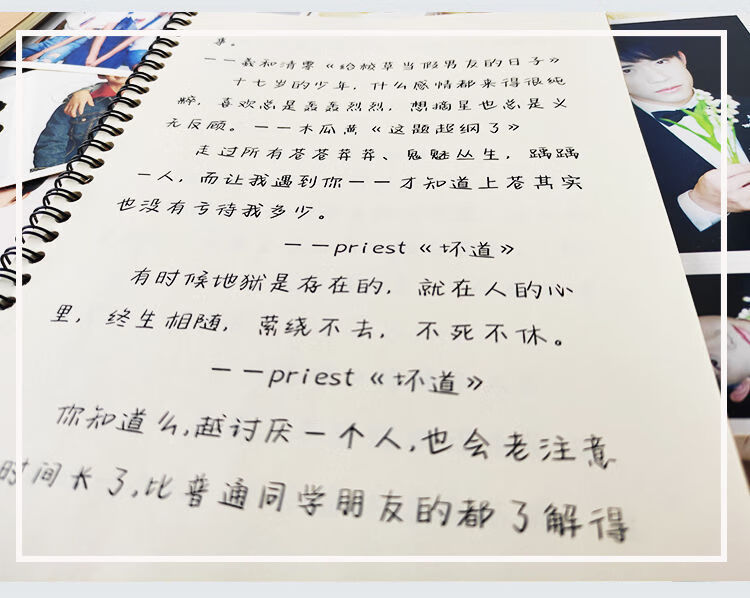 事。
——羲和清零《给校草当假男友的日子》
十七岁的少年，什么感情都来得很纯
粹，喜欢总是轰轰烈烈，想摘星也总是义
无反顾。——木瓜黄《这题超纲了》
走过所有苍苍莽莽、鬼魅丛生，踽踽
一人，而让我遇到你——才知道上苍其实
也没有亏待我多少。
——priest《坏道》
有时候地狱是存在的，就在人的心
里，终生相随，萦绕不去，不死不休。
——priest《坏道》
你知道么，越讨厌一个人，也会老注意
时间长了，比普通同学朋友的都了解得